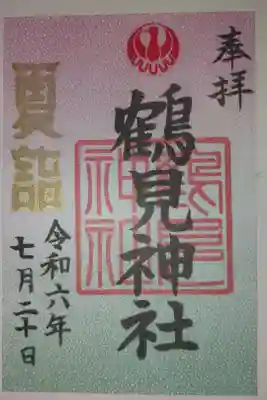 奉拝
鶴見神社
鶴見
神社
夏詣
令和六年
七月二十日